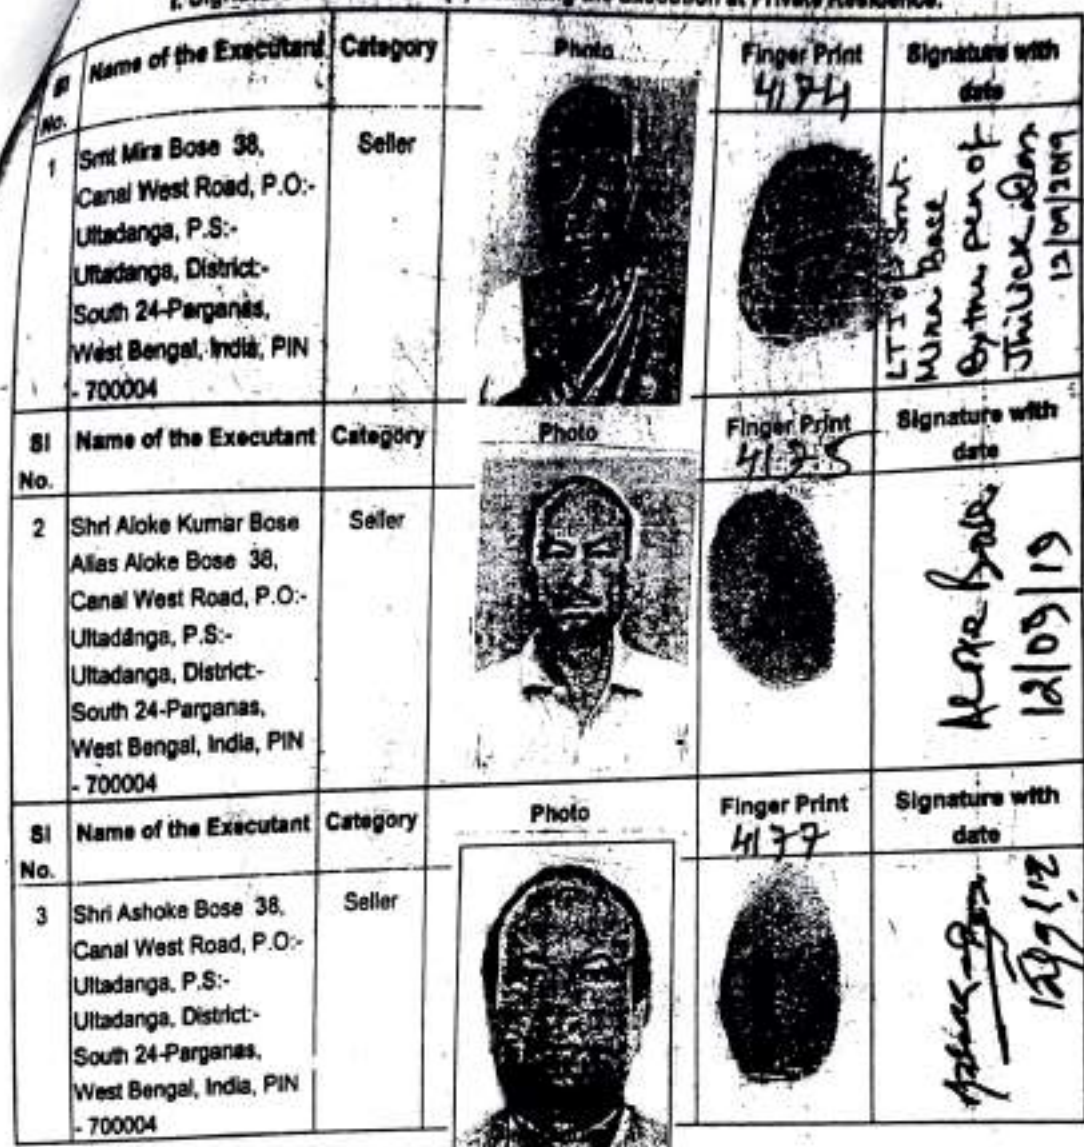 I. Signature of the admitting the Execution at Private Residence.
Sl No. Name of the Executant Category Photo Finger Print Signature with date
4174
1 Smt Mira Bose 38, Seller
Canal West Road, P.O:-
Ultadanga, P.S:-
Ultadanga, District:-
South 24-Parganas,
West Bengal, India, PIN
- 700004
LTI of Smt.
Mira Bose
By the pen of
Jhilick Das
12/09/2019
Sl No. Name of the Executant Category Photo Finger Print Signature with date
4175
2 Shri Aloke Kumar Bose Seller
Alias Aloke Bose 38,
Canal West Road, P.O:-
Ultadanga, P.S:-
Ultadanga, District:-
South 24-Parganas,
West Bengal, India, PIN
- 700004
Aloke Bose
12/09/19
Sl No. Name of the Executant Category Photo Finger Print Signature with date
4177
3 Shri Ashoke Bose 38, Seller
Canal West Road, P.O:-
Ultadanga, P.S:-
Ultadanga, District:-
South 24-Parganas,
West Bengal, India, PIN
- 700004